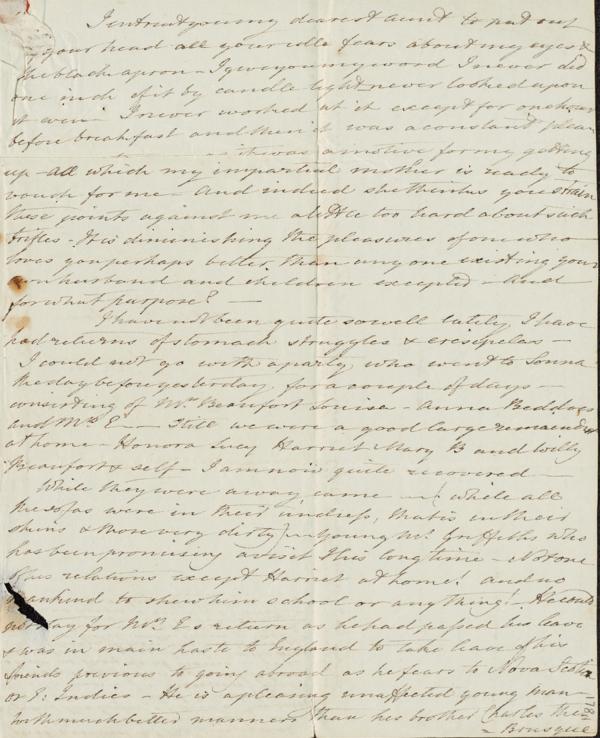 I intreat you my dearest aunt to put out
of your head all your idle fears about my eyes &
the black apron – I give you my word I never did
one inch of it by candle light never looked upon
it even – I never worked at it except for one hour
before breakfast and then it was a constant pleasure
it was a motive for my getting
up – all which my impartial mother is ready to
vouch for me – And indeed she thinks you strain
these points against me a little too hard about such
trifles – It is diminishing the pleasures of one who
loves you perhaps better than any one existing your
own husband and children excepted – And
for what purpose? –
I have not been quite so well lately, I have
had returns of stomach struggles & eresipelas –
I could not go with a party who went to Sonna
the day before yesterday, for a couple of days –
consisting of Mrs Beaufort Louisa – Anna Beddoes
and Mrs E – – Still we were a good large remainder
at home – Honora Lucy Harriet Mary B and Willy
Beaufort & self – I am now quite recovered –
While they were away, came – (while all
the sofas were in their undress, that is in their
skins & those very dirty) – Young Mr Griffiths who
has been promising a visit this long time – Not one
of his relations except Harriet at home! and no
mankind to shew him school or anything! – He could
not stay for Mrs E s return as he had passed his leave
& was in main haste to England to take leave of his
friends previous to going abroad as he fears to Nova Scotia
or E: Indies – He is a pleasing unaffected young man
with much better manners than his brother Charles the
– Brusque